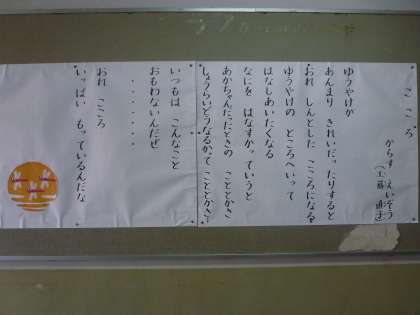 こころ
からす えいぞう
(工藤 直子)
ゆうやけが
あんまり きれいだったりすると
おれ しんとした こころになる
ゆうやけの ところへいって
はなしあいたくなる
なにを はなすかって いうと
あかちゃんだったときの こととかさ
しょうらいどうなるかって こととかさ
いつもは こんなこと
おもわないんだぜ
・・・・・・
おれ こころ
いっぱい もっているんだな